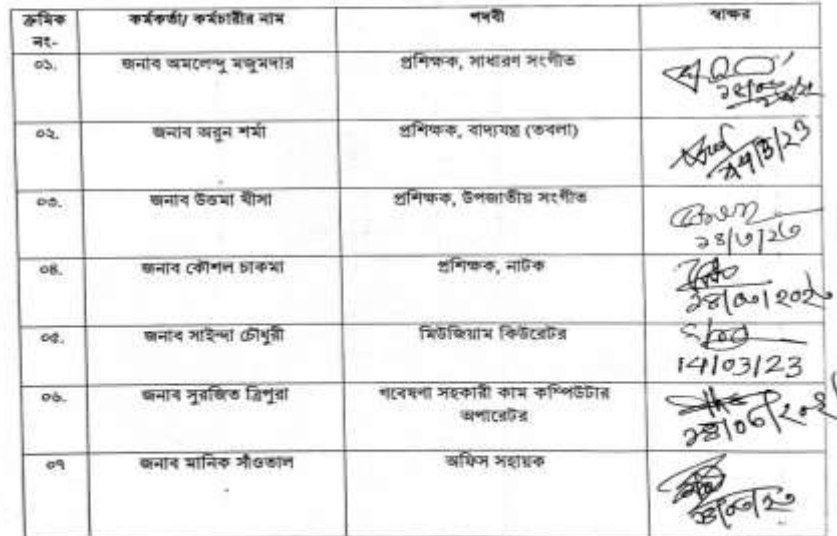 ক্রমিক নং- কর্মকর্তা/ কর্মচারীর নাম পদবী স্বাক্ষর
০১. জনাব অমলেন্দু মজুমদার প্রশিক্ষক, সাধারণ সংগীত
০২. জনাব অরুন শর্মা প্রশিক্ষক, বাদ্যযন্ত্র (তবলা) ১৪/3/23
০৩. জনাব উত্তমা খীসা প্রশিক্ষক, উপজাতীয় সংগীত ১৪/৩/২৩
০৪. জনাব কৌশল চাকমা প্রশিক্ষক, নাটক
০৫. জনাব সাইন্দা চৌধুরী মিউজিয়াম কিউরেটর 14/03/23
০৬. জনাব সুরজিত ত্রিপুরা গবেষণা সহকারী কাম কম্পিউটার
অপারেটর
০৭ জনাব মানিক সাঁওতাল অফিস সহায়ক